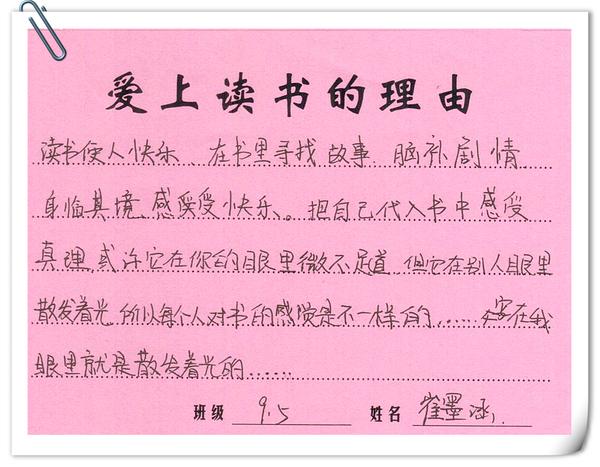 爱上读书的理由
读书使人快乐、在书里寻找故事 脑补剧情、
身临其境、感受受快乐、。把自己代入书中感受
真理,或许它在你的眼里微不足道,但它在别人眼里
散发着光 所以每个人对书的感觉是不一样的…… 在我
眼里就是散发着光的……
班级 9.5 姓名 崔墨涵